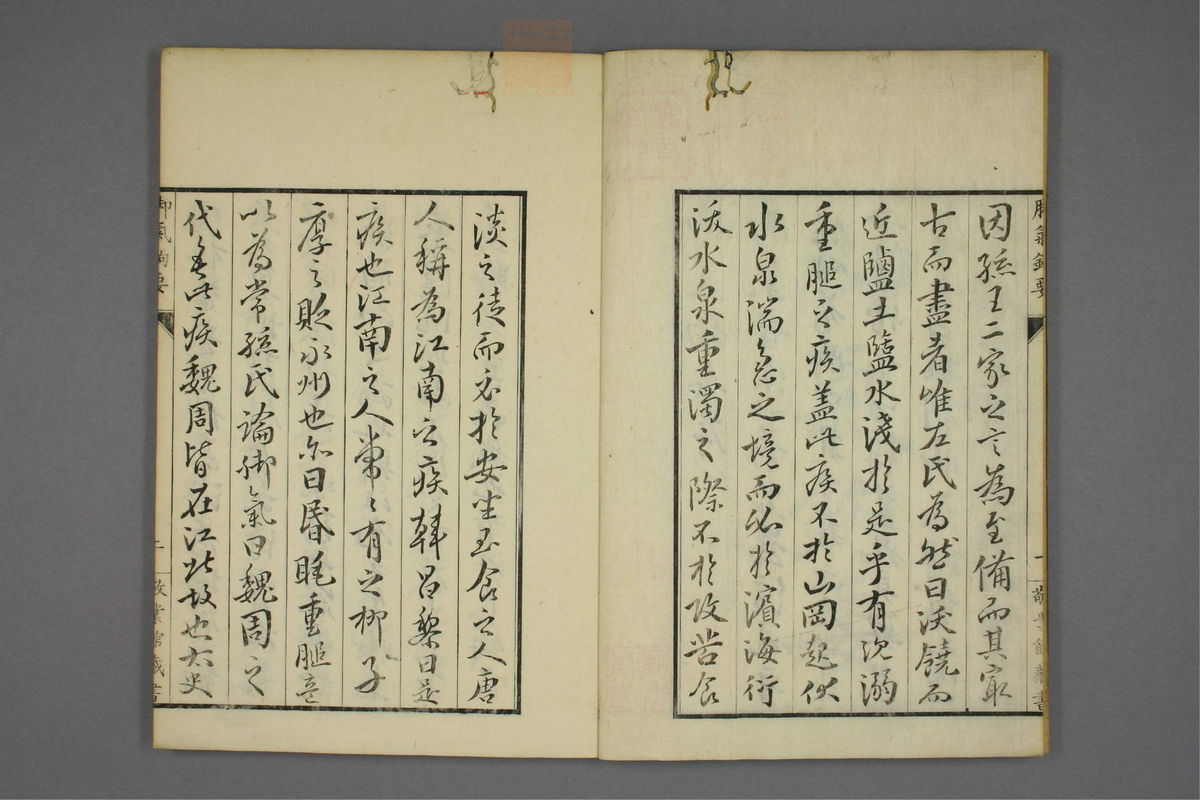 因孫王二家之言為至備而其寂
古而盡者唯左氏為然曰沃饒而
近鹽土鹽水淺於是乎有沈溺
重腿之疾盖此疾不於山岡起伏
水泉湍急之境而必於濱海衍
沃水泉重濁之際不於攻苦食
脚氣鈎要
一
敬業館藏書
淡之徒而必於安坐玉食之人唐
人稱為江南之疾韓昌黎曰是
疾也江南之人常〻有之柳子
厚之貶永州也亦曰昏眊重腿意
以為常孫氏論脚氣曰魏周之
代無此疾魏周皆在江北故也太史
脚氣鈎要
二
敬業館藏書